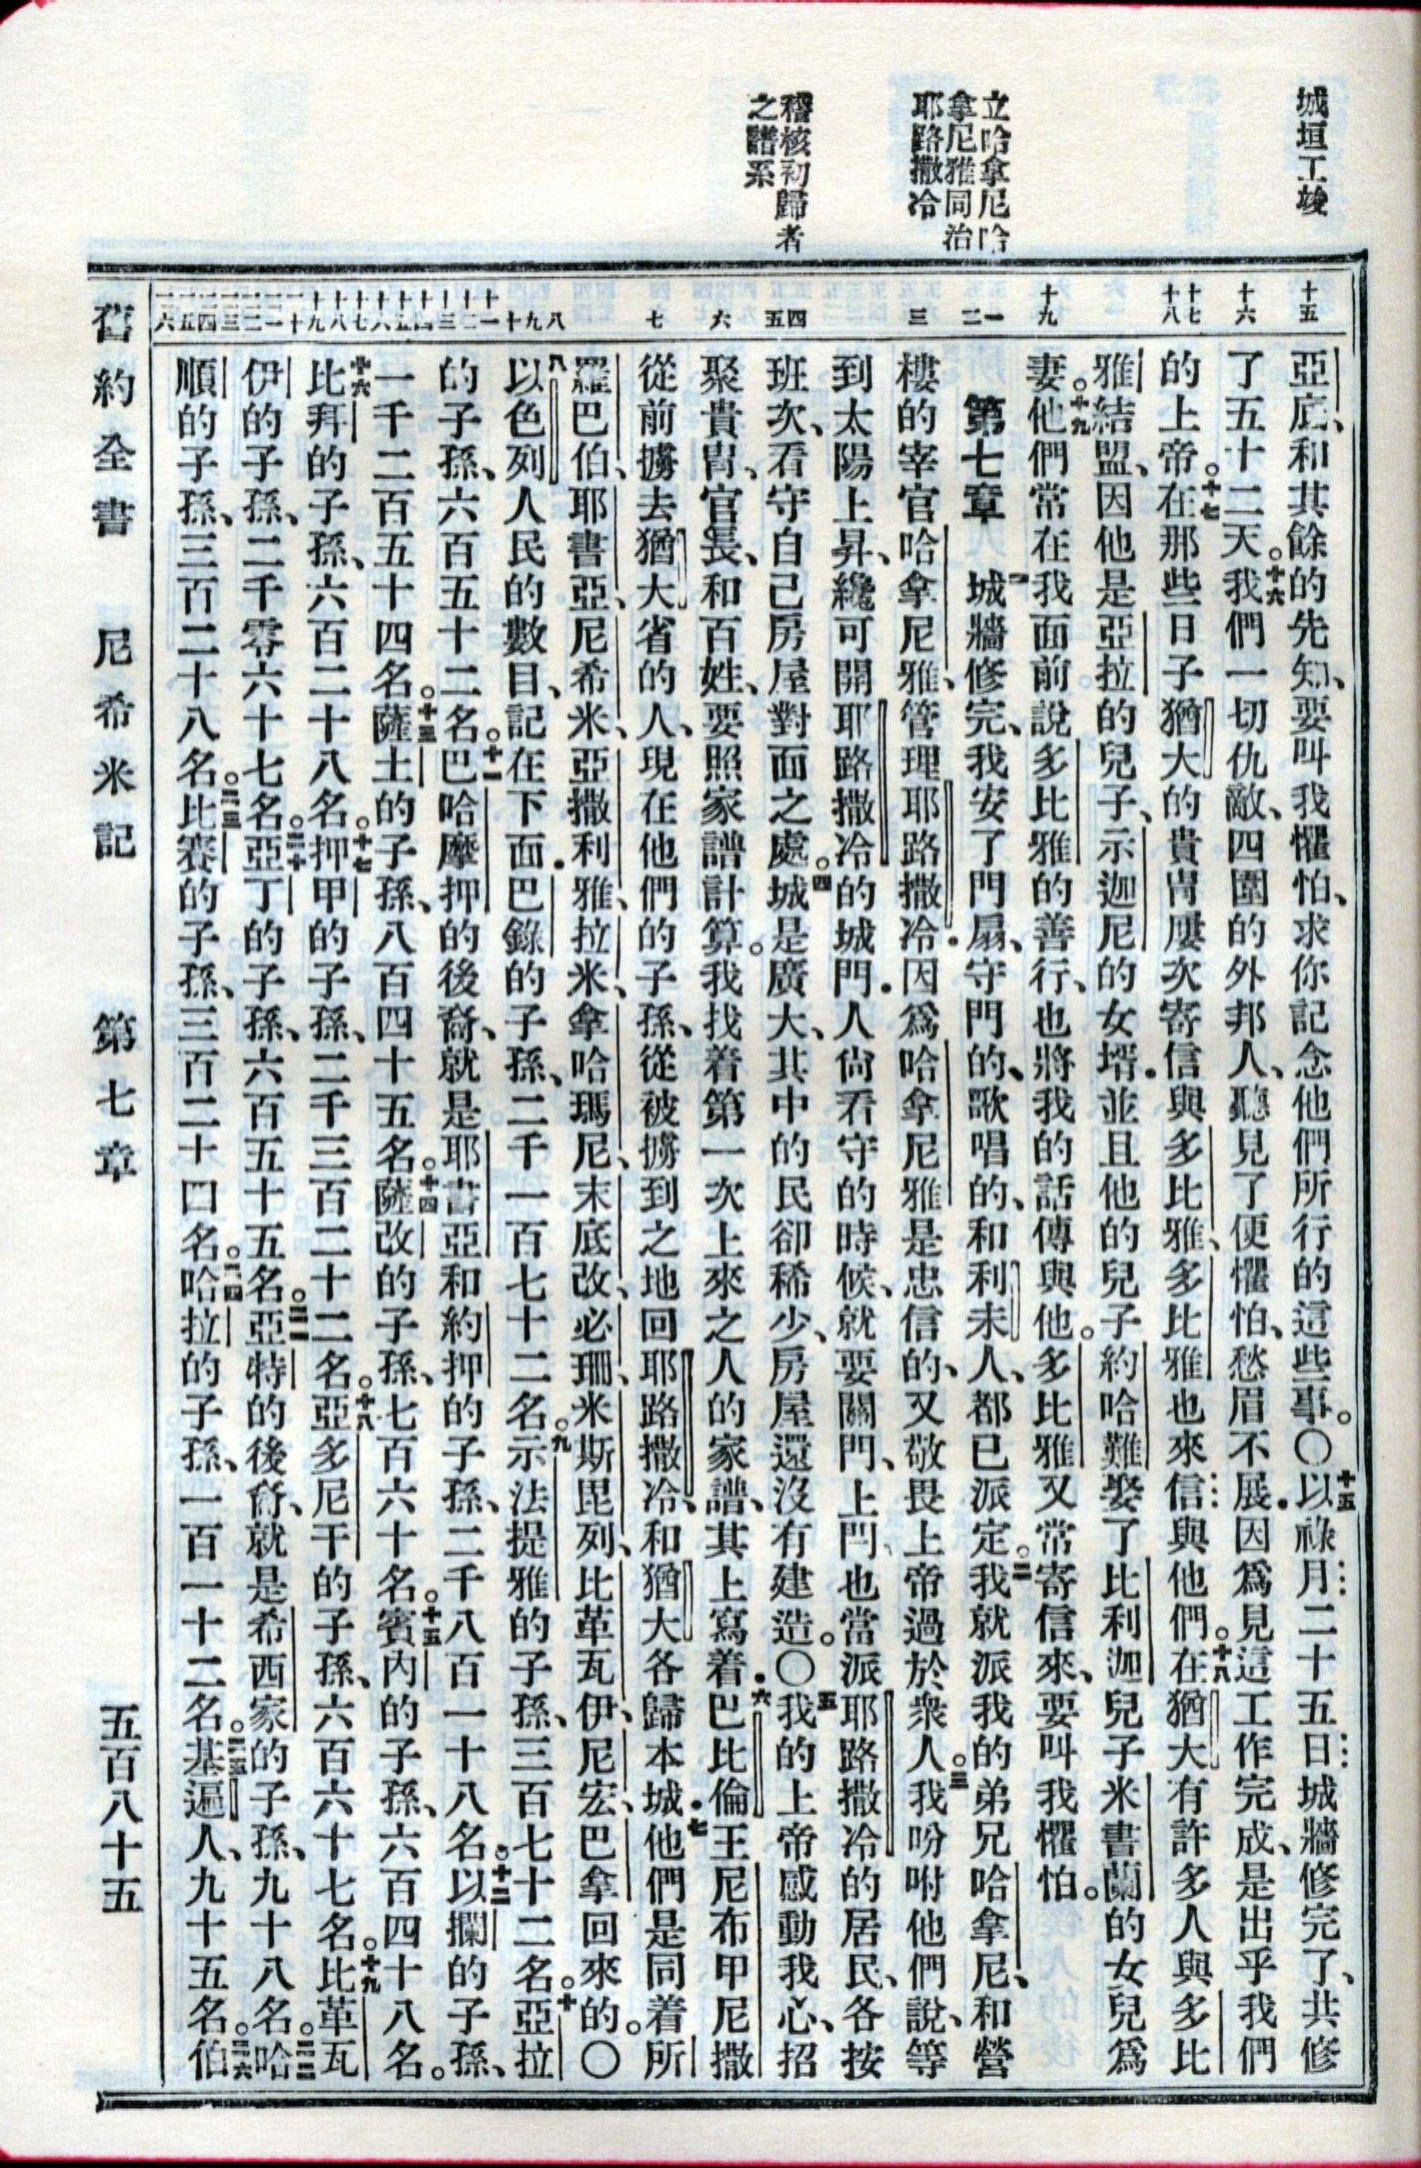 城垣工竣
立哈拿尼哈
拿尼雅同治
耶路撒冷
稽核初歸者
之譜系
十五
十六
十七
十八
十九
一
二
三
四
五
六
七
八
九
十
十一
十二
十三
十四
十五
十六
十七
十八
十九
二十
二一
二二
二三
二四
二五
二六
亞底、和其餘的先知、要叫我懼怕、求你記念他們所行的這些事。〇十五以祿月二十五日城牆修完了、共修
了五十二天。十六我們一切仇敵、四圍的外邦人、聽見了便懼怕、愁眉不展．因爲見這工作完成、是出乎我們
的上帝。十七在那些日子猶大的貴冑屢次寄信與多比雅、多比雅也來信與他們。十八在猶大有許多人與多比
雅結盟、因他是亞拉的兒子、示迦尼的女壻．並且他的兒子約哈難娶了比利迦兒子米書蘭的女兒爲
妻。十九他們常在我面前說多比雅的善行、也將我的話傳與他。多比雅又常寄信來、要叫我懼怕。
第七章 一城牆修完、我安了門扇、守門的、歌唱的、和利未人、都已派定。二我就派我的弟兄哈拿尼、和營
樓的宰官哈拿尼雅、管理耶路撒冷．因爲哈拿尼雅是忠信的、又敬畏上帝過於衆人。三我吩咐他們說、等
到太陽上昇、纔可開耶路撒冷的城門．人尙看守的時候、就要關門、上閂也當派耶路撒冷的居民、各按
班次、看守自己房屋對面之處。四城是廣大、其中的民卻稀少、房屋還沒有建造。〇五我的上帝感動我心、招
聚貴冑、官長、和百姓、要照家譜計算。我找着第一次上來之人的家譜、其上寫着．六巴比倫王尼布甲尼撒
從前擄去猶大省的人、現在他們的子孫、從被擄到之地回耶路撒冷、和猶大各歸本城．七他們是同着所
羅巴伯、耶書亞、尼希米、亞撒利雅、拉米、拿哈瑪尼、末底改、必珊、米斯毘列、比革瓦伊、尼宏、巴拿回來的。〇
八以色列人民的數目、記在下面．巴錄的子孫、二千一百七十二名。九示法提雅的子孫、三百七十二名。十亞拉
的子孫、六百五十二名。十一巴哈摩押的後裔、就是耶書亞和約押的子孫、二千八百一十八名。十二以攔的子孫、
一千二百五十四名。十三薩土的子孫、八百四十五名。十四薩改的子孫、七百六十名。十五賓內的子孫、六百四十八名。
十六比拜的子孫、六百二十八名。十七押甲的子孫、二千三百二十二名。十八亞多尼干的子孫、六百六十七名。十九比革瓦
伊的子孫、二千零六十七名。二十亞丁的子孫、六百五十五名。二一亞特的後裔、就是希西家的子孫、九十八名。二二哈
順的子孫、三百二十八名。二三比賽的子孫、三百二十四名。二四哈拉的子孫、一百一十二名。二五基遍人、九十五名。二六伯
舊約全書 尼希米記 第七章 五百八十五